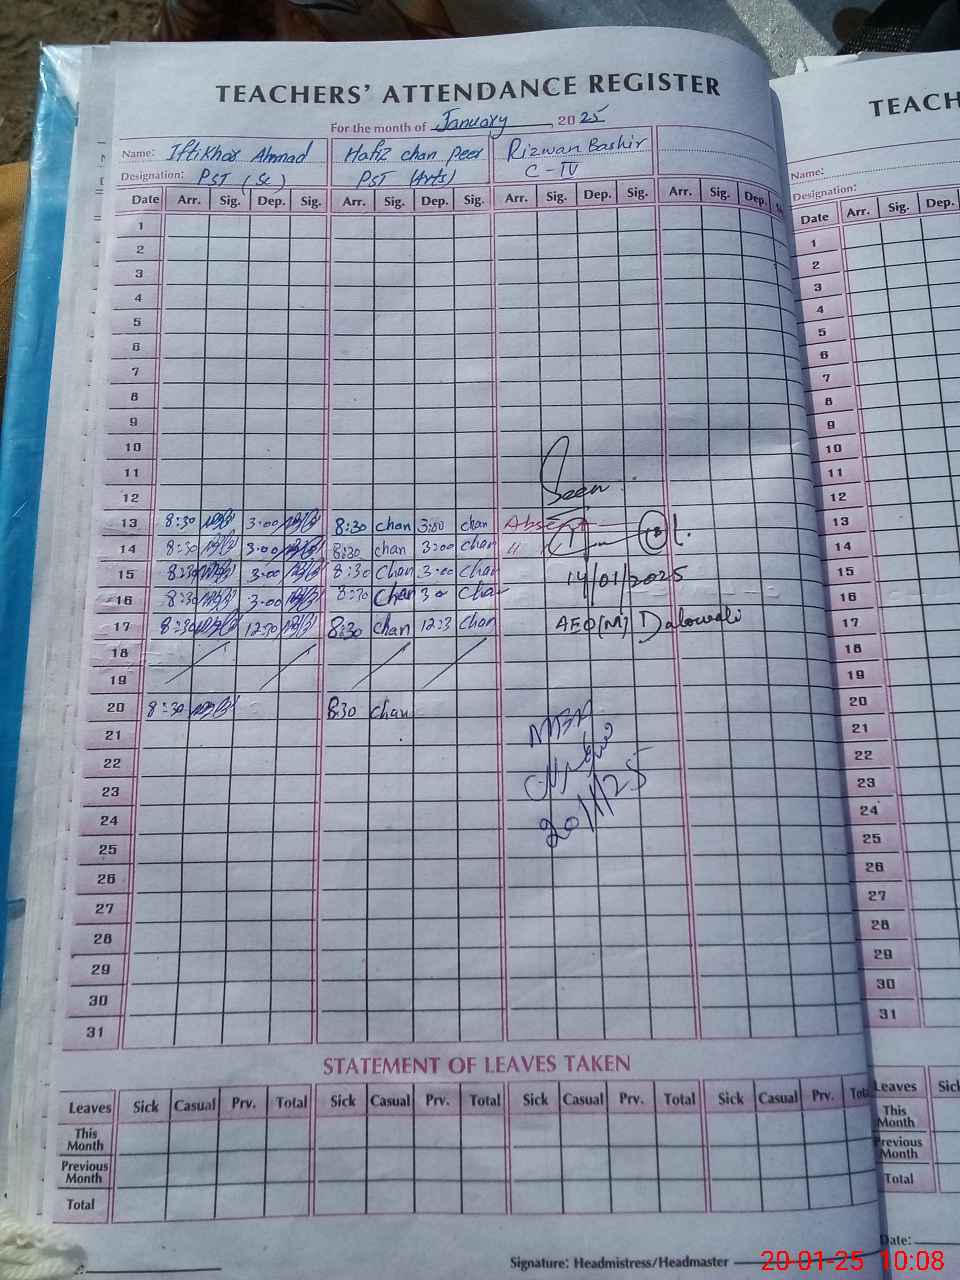 TEACHERS' ATTENDANCE REGISTER
For the month of January, 2025
Name: Iftikhar Ahmad Hafiz chan Peer Rizwan Bashir
Designation: PST (Sc) PST (Arts) C-IV
Date Arr. Sig. Dep. Sig. Arr. Sig. Dep. Sig. Arr. Sig. Dep. Sig. Arr. Sig. Dep.
1
2
3
4
5
6
7
8
9
10
11
12
Seen
13 8:30 3:00 8:30 chan 3:00 chan Absent
14 8:30 3:00 8:30 chan 3:00 chan "
15 8:30 3:00 8:30 chan 3:00 chan
14/01/2025
16 8:30 3:00 8:30 chan 3:0 cha
17 8:30 12:30 8:30 chan 12:3 chan
AEO(M) Dalowali
18
19
20 8:30 8:30 chan
21
22
23
20/1/25
24
25
26
27
28
29
30
31
STATEMENT OF LEAVES TAKEN
Leaves Sick Casual Prv. Total Sick Casual Prv. Total Sick Casual Prv. Total Sick Casual Prv. Total
This Month
Previous Month
Total
Signature: Headmistress/Headmaster
TEACH
Name:
Designation:
Date Arr. Sig. Dep.
1
2
3
4
5
6
7
8
9
10
11
12
13
14
15
16
17
18
19
20
21
22
23
24
25
26
27
28
29
30
31
Leaves Sick
This Month
Previous Month
Total
Date:
20-01-25 10:08